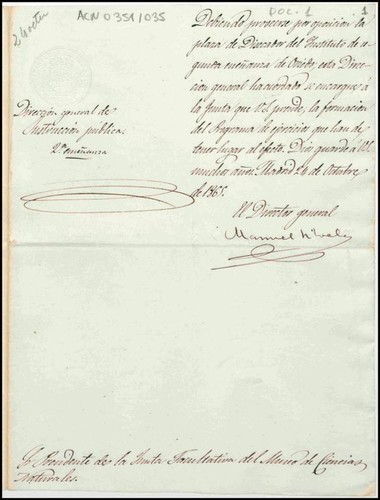 24 octre
ACN0351/035
DOC. 1
1
Debiendo proveerse por oposicion la
plaza de Disecador del Instituto de se-
gunda enseñanza de Oviedo, esta Direc-
cion general ha acordado se encargue á
la Junta que V.S. preside, la formacion
del Programa de ejercicios que han de
tener lugar al efecto. Dios guarde á V.S.
muchos años. Madrid 24 de Octubre
de 1865.
El Director general
Manuel
Dirección general de
Instruccion publica.
2ª enseñanza
Sr Presidente de la Junta Facultativa del Museo de Ciencias
naturales.